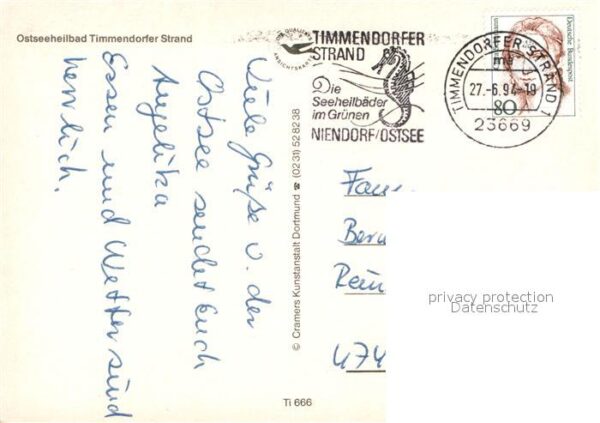 Ostseeheilbad Timmendorfer Strand
Viele Grüße v. der
Ostsee sendet Euch
Angelika
Essen und Wetter sind
herrlich.
© Cramers Kunstanstalt Dortmund ☎ (0231) 528238
Ti 666
TIMMENDORFER
STRAND
Die
Seeheilbäder
im Grünen
NIENDORF/OSTSEE
TIMMENDORFER STRAND 1
27.-6.94-19
23669
Deutsche Bundespost
80
Fam
474
privacy protection
Datenschutz